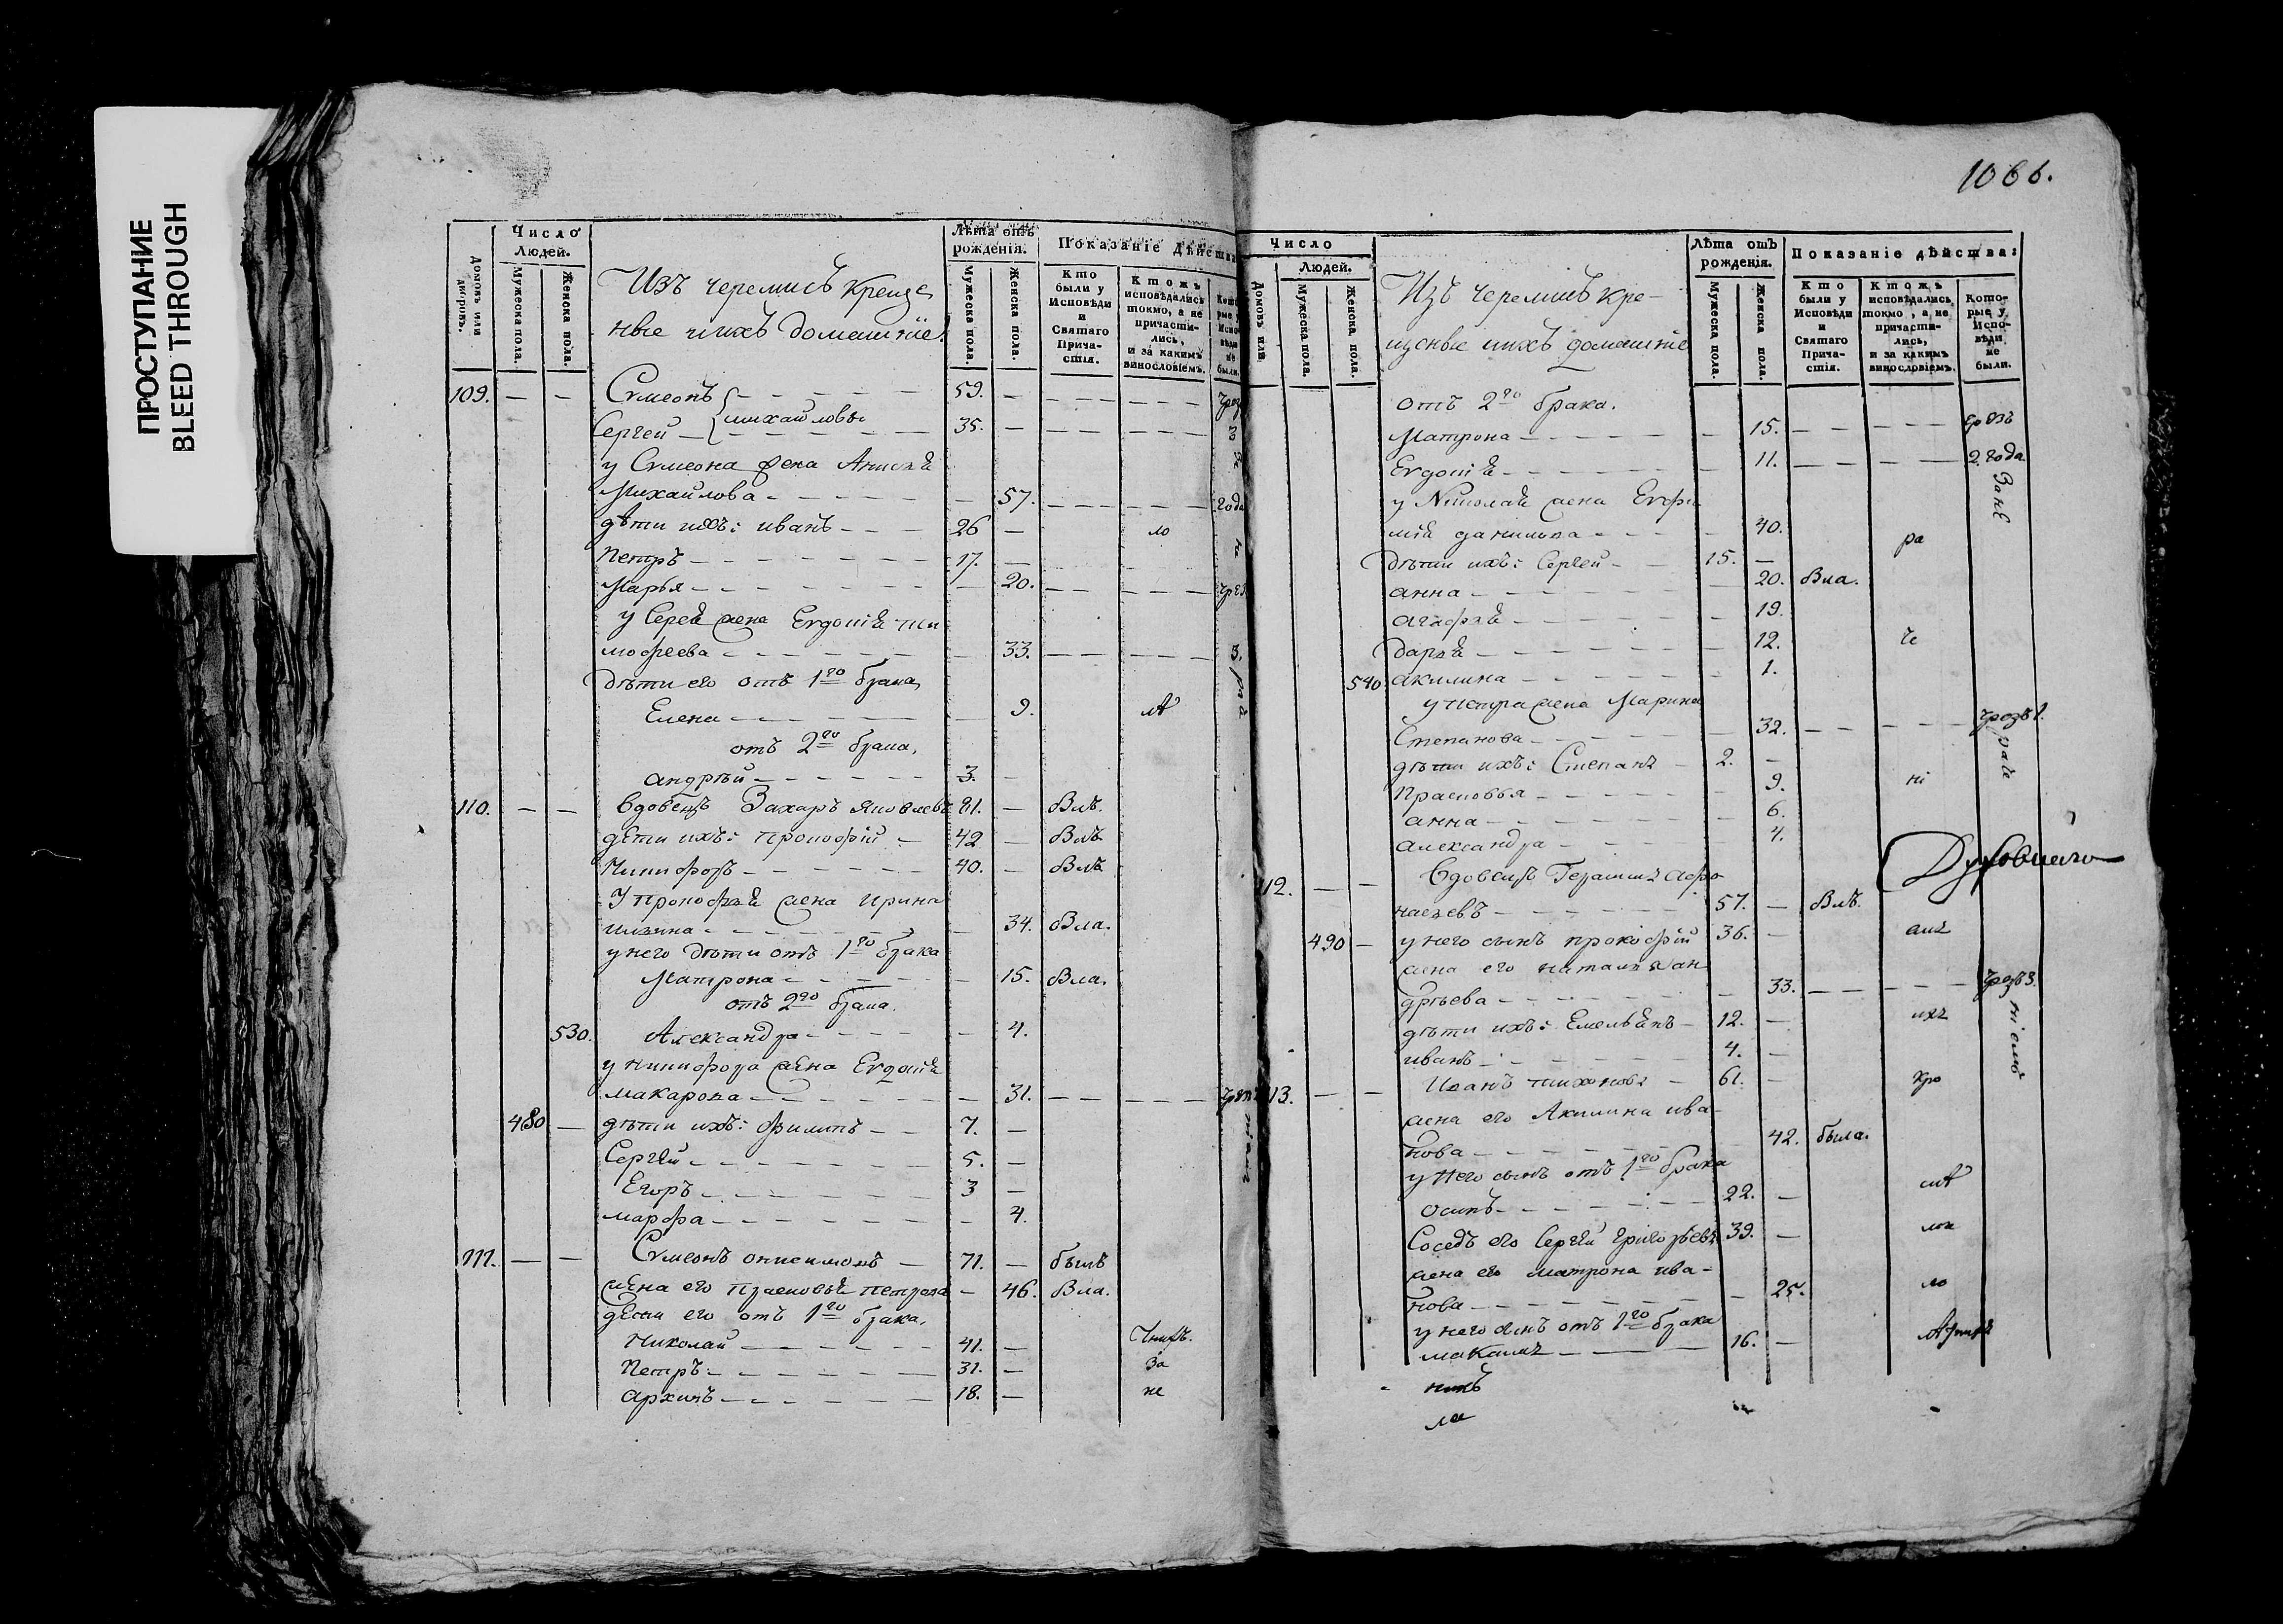 ПРОСТУПАНИЕ
BLEED THROUGH
Домовъ или дворовъ.
Число Людей.
Мужеска пола.
Женска пола.
Изъ черемисъ креще
ные и ихъ домашніе
Лѣта отъ рожденія.
Мужеска пола.
Женска пола.
Показаніе дѣйства
Кто были у Исповѣди и Святаго Прича- стія.
Ктожъ исповѣдались токмо, а не причасти- лись, и за какимъ винословіемъ.
109. — — Сѵмеонъ 59. —
Сергей михайловы 35. — 3
у Сѵмеона жена Анисья
Михайлова — 57. года
дѣти ихъ: иванъ 26 — мо
Петръ 17. —
Марья — 20.
у Сергея жена Евдокія тим
мофеева — 33. 3.
Дѣти его отъ 1го брака
Елена — 9.
отъ 2го брака,
андрѣй 3. —
110. — — вдовецъ Захаръ яковлевъ 81. — Былъ.
дѣти ихъ: прокофій 42 — Былъ
Никифоръ 40. — Былъ
У прокофья жена ирина
ильина — 34. Была.
у него дѣти отъ 1го брака
Матрона — 15. Была.
отъ 2го брака.
530. Александра — 4.
у никифора жена Евдокія
макарова — 31.
480 — дѣти ихъ: филипъ 7. —
Сергѣй 5. —
Егоръ 3 —
марфа — 4.
111. — — Сѵмеонъ онисимовъ 71. — былъ
жена его прасковья петрова — 46. Была.
дѣти его отъ 1го брака,
Николай 41. —
Петръ 31. — за
архипъ 18. — не
1066.
Число Людей.
Домовъ или
Мужеска пола.
Женска пола.
Изъ черемисъ кре-
щеные и ихъ домашніе
Лѣта отъ рожденія.
Мужеска пола.
Женска пола.
Показаніе дѣйства:
Кто были у Исповѣди и Святаго Прича- стія.
Ктожъ исповѣдались токмо, а не причасти- лись, и за какимъ винословіемъ.
Кото- рые у Испо- вѣди не были.
отъ 2го брака.
Матрона — 15.
Евдокія — 11. 2 года
у Николая жена Евфи
мія данилова — 40. ра
Дѣти ихъ: Сергей 15. —
анна — 20. Была.
агафья — 19.
дарья — 12. че
540. акилина — 1.
у петра жена Марина
Степанова — 32.
дѣти ихъ: Степанъ 2. —
Прасковья — 9. ні
анна — 6.
александра — 4.
Духовнаго
112. — — вдовецъ Герасимъ афо
насьевъ 57. — Былъ.
490 — у него сынъ прокофій 36. —
жена его наталья ан
дрѣева — 33. чрезъ 3.
дѣти ихъ: Емельянъ 12. —
иванъ 4. —
113. — — Иванъ тихоновъ 61. —
жена его Акилина ива-
нова 42. была.
у него сынъ отъ 1го брака
осипъ 22. —
Соседъ его Сергѣй григорьевъ 39. —
жена его матрона ива-
нова — 25. ло
у него сынъ отъ 1го брака
16. —